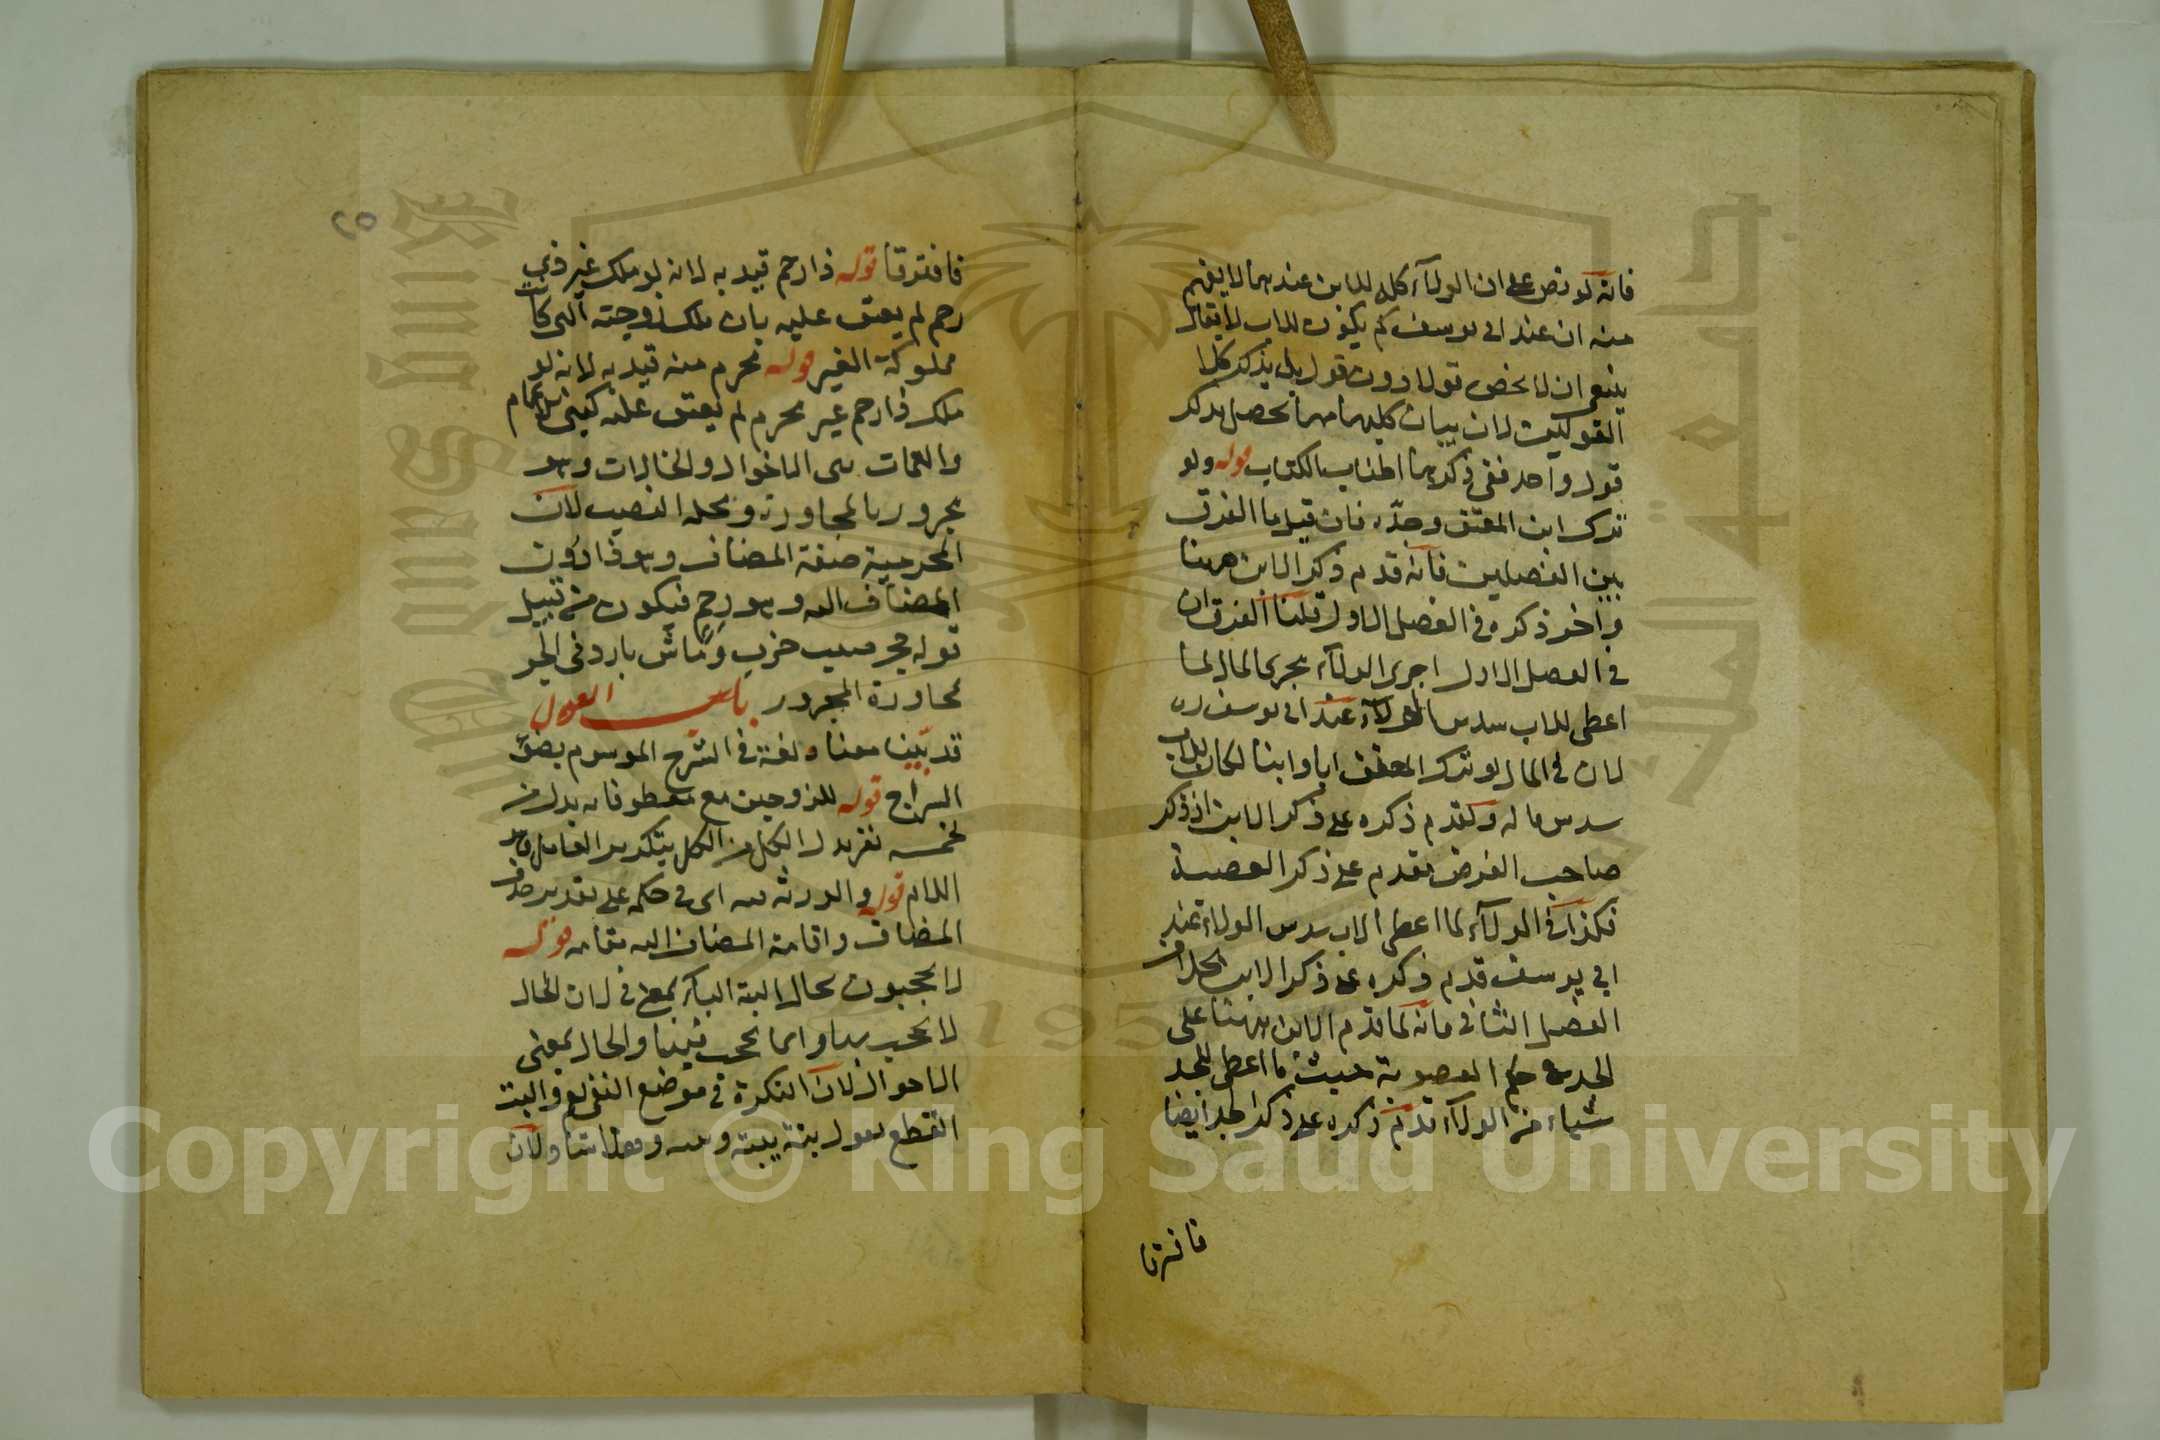 فانه لو نص على ان الولاء كله للابن عندهما لا يفهم
منه ان عند ابى يوسف كم يكون للاب لا يقال
ينبغى ان لا يخص قولا دون قول بل يذكر كلا
القولين لان بيان كليهما مهما يحصل بذكر
قول واحد ففى ذكرهما اطناب الكتاب قوله ولو
ترك ابن المعتق وجده فان قيل ما الفرق
بين الفصلين فانه قدم ذكر الابن ههنا
واخر ذكره فى الفصل الاول قلنا الفرق ان
فى الفصل الاول اجرى الولاء مجرى المال لما
اعطى للاب سدس الولاء عند ابى يوسف ره
لان فى المال لو ترك المعتق ابا وابنا لكان للاب
سدس ماله وتقدم ذكره على ذكر الابن اذ ذكر
صاحب الفرض مقدم على ذكر العصبة
فكذا فى الولاء لما اعطى الاب سدس الولاء عند
ابى يوسف قدم ذكره على ذكر الابن بخلاف
الفصل الثانى فانه لما قدم الابن ههنا على
الجد فى حكم العصوبة حيث ما اعطى للجد
شياء من الولاء قدم ذكره على ذكر الجد ايضا
فافترقا
٢٥
فافترقا قوله ذا رحم قيد به لانه لو ملك غير ذى
رحم لم يعتق عليه بان ملك زوجته التى كانت
مملوكة الغير قوله محرم منه قيد به لانه لو
ملك ذا رحم غير محرم لم يعتق عليه كبنى الاعمام
والعمات بنى الاخوال والخالات وهو
مجرور بالمجاورة ومحله النصب لان
المحرمية صفة المضاف وهو ذا دون
المضاف اليه وهو رحم فيكون من قبيل
قوله جحر ضب خرب وماء شن بارد فى الجر
مجاورة المجرور باب العول
قد بينا معناه لغة فى الشرح الموسوم بضوء
السراج قوله للزوجين مع معطوفاته بدل من
لخمسة بدل الكل من الكل بتكرير العامل وهو
اللام قوله والورثة فيه اى فى حكمه على تقدير حذف
المضاف واقامة المضاف اليه مقامه قوله
لا يحجبون بحال البتة الباء بمعنى فى لان الحال
لا يحجب بها وانما يحجب فيها والحال بمعنى
الاحوال لان النكرة فى موضع النفى تعم والبت
القطع يقول بته يبته
King Saud University
جامعة الملك سعود
1957
Copyright © King Saud University